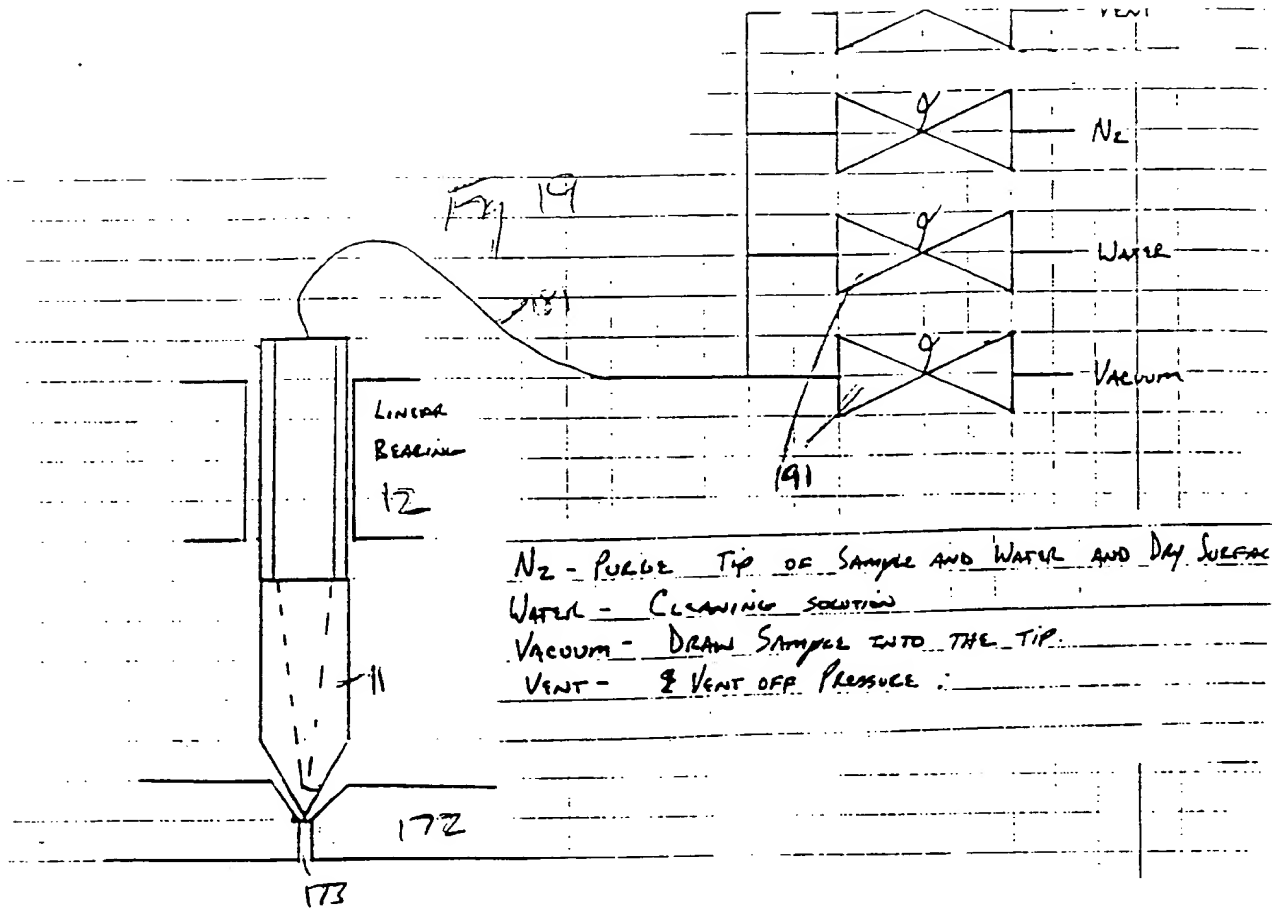 VENT
N2
WATER
VACUUM
Fig 19
181
LINEAR
BEARING
12
191
N2 - PURGE TIP OF SAMPLE AND WATER AND DRY SURFAC
WATER - CLEANING SOLUTION
VACUUM - DRAW SAMPLE INTO THE TIP.
VENT - & VENT OFF PRESSURE.
11
172
173